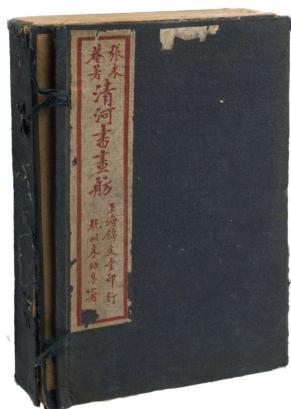 張米
菴著
清河書畫舫
上海錦文堂印行
署